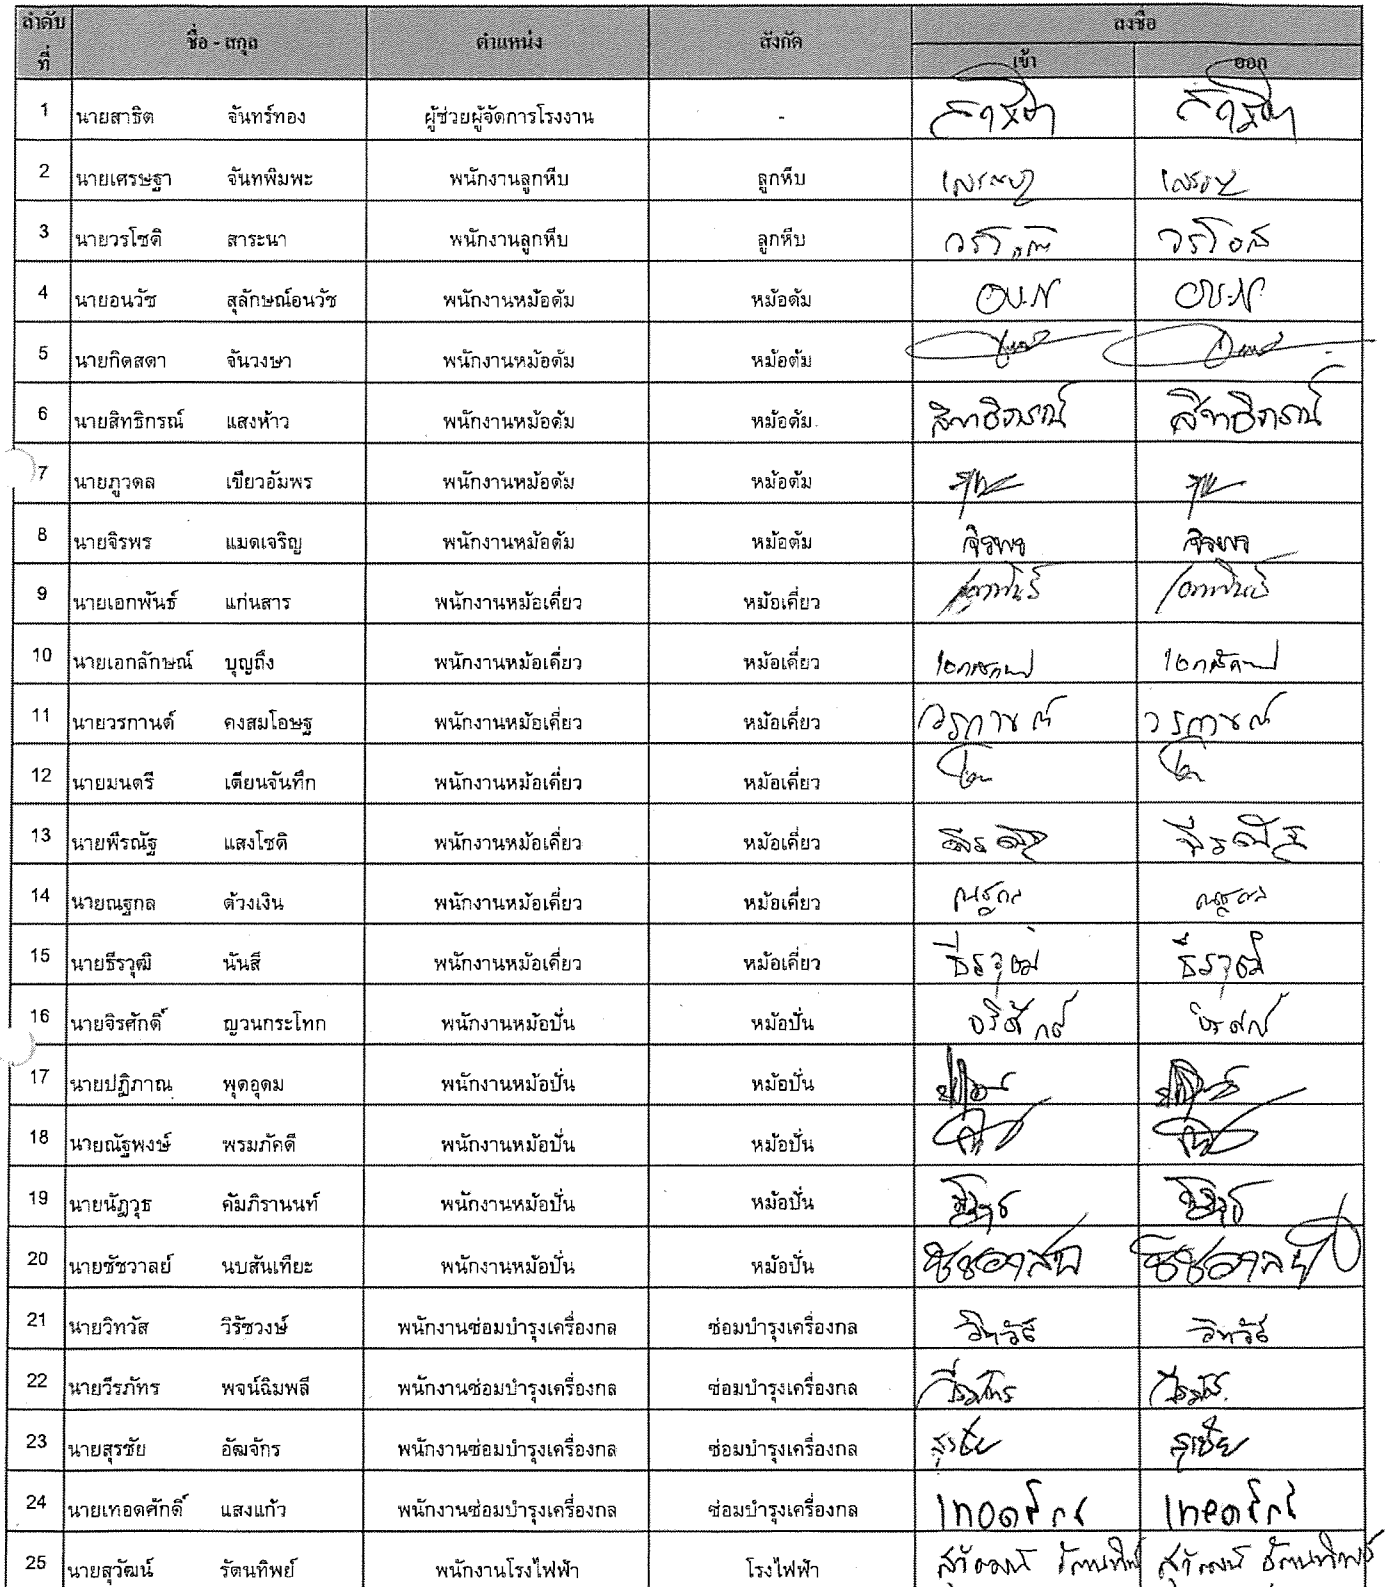 ลำดับที่ ชื่อ - สกุล ตำแหน่ง สังกัด ลงชื่อ
เข้า ออก
1 นายสาธิต จันทร์ทอง ผู้ช่วยผู้จัดการโรงงาน -
2 นายเศรษฐา จันทพิมพะ พนักงานลูกหีบ ลูกหีบ
3 นายวรโชติ สาระนา พนักงานลูกหีบ ลูกหีบ
4 นายอนวัช สุลักษณ์อนวัช พนักงานหม้อต้ม หม้อต้ม
5 นายกิตสดา จันวงษา พนักงานหม้อต้ม หม้อต้ม
6 นายสิทธิกรณ์ แสงห้าว พนักงานหม้อต้ม หม้อต้ม สิทธิกรณ์ สิทธิกรณ์
7 นายภูวดล เขียวอัมพร พนักงานหม้อต้ม หม้อต้ม
8 นายจิรพร แมดเจริญ พนักงานหม้อต้ม หม้อต้ม จิรพร จิรพร
9 นายเอกพันธ์ แก่นสาร พนักงานหม้อเคี่ยว หม้อเคี่ยว
10 นายเอกลักษณ์ บุญถึง พนักงานหม้อเคี่ยว หม้อเคี่ยว
11 นายวรกานต์ คงสมโอษฐ พนักงานหม้อเคี่ยว หม้อเคี่ยว
12 นายมนตรี เตียนจันทึก พนักงานหม้อเคี่ยว หม้อเคี่ยว
13 นายพีรณัฐ แสงโชติ พนักงานหม้อเคี่ยว หม้อเคี่ยว
14 นายณฐกล ด้วงเงิน พนักงานหม้อเคี่ยว หม้อเคี่ยว
15 นายธีรวุฒิ นันสี พนักงานหม้อเคี่ยว หม้อเคี่ยว ธีรวุฒิ ธีรวุฒิ
16 นายจิรศักดิ์ ญวนกระโทก พนักงานหม้อปั่น หม้อปั่น
17 นายปฏิภาณ พุดอุดม พนักงานหม้อปั่น หม้อปั่น
18 นายณัฐพงษ์ พรมภักดี พนักงานหม้อปั่น หม้อปั่น
19 นายนัฎวุธ คัมภิรานนท์ พนักงานหม้อปั่น หม้อปั่น
20 นายชัชวาลย์ นบสันเทียะ พนักงานหม้อปั่น หม้อปั่น
21 นายวิทวัส วิรัชวงษ์ พนักงานซ่อมบำรุงเครื่องกล ซ่อมบำรุงเครื่องกล วิทวัส วิทวัส
22 นายวีรภัทร พจน์ฉิมพลี พนักงานซ่อมบำรุงเครื่องกล ซ่อมบำรุงเครื่องกล
23 นายสุรชัย อัฒจักร พนักงานซ่อมบำรุงเครื่องกล ซ่อมบำรุงเครื่องกล สุรชัย สุรชัย
24 นายเทอดศักดิ์ แสงแก้ว พนักงานซ่อมบำรุงเครื่องกล ซ่อมบำรุงเครื่องกล
25 นายสุวัฒน์ รัตนทิพย์ พนักงานโรงไฟฟ้า โรงไฟฟ้า สุวัฒน์ รัตนทิพย์ สุวัฒน์ รัตนทิพย์